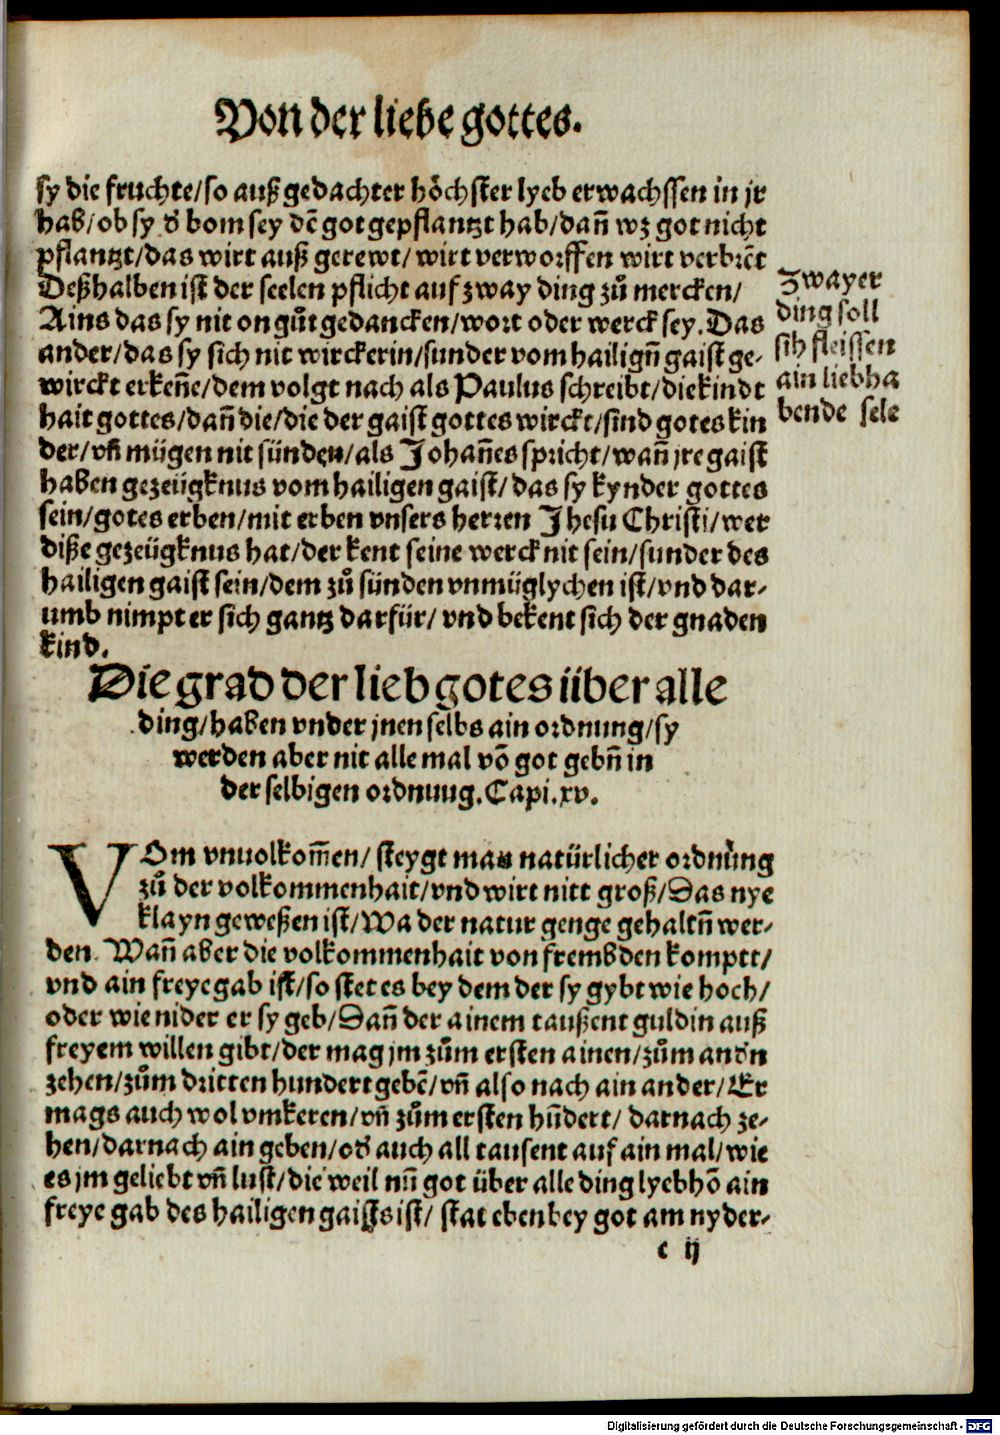 Von der liebe gottes.
sy die fruchte/so auß gedachter höchster lyeb erwachssen in jr
hab/ob sy d̕ bom sey dē got gepflantzt hab/dañ wz got nicht
pflantzt/das wirt auß gerewt/ wirt verworffen wirt verbrēt
Deßhalben ist der seelen pflicht auf zway ding zů mercken/
Ains das sy nit on gůt gedancken/wort oder werck sey. Das
ander/das sy sich nit wirckerin/sunder vom hailigñ gaist ge-
wirckt erkeñe/dem volgt nach als Paulus schreibt/die kindt
hait gottes/dañ die/die der gaist gottes wirckt/sind gotes kin
der/vñ mügen nit sünden/als Johañes spricht/wañ jre gaist
haben gezeügknus vom hailigen gaist/das sy kynder gottes
sein/gotes erben/mit erben vnsers herren Jhesu Christi/wer
diße gezeügknus hat/der kent seine werck nit sein/sunder des
hailigen gaist sein/dem zů sünden vnmüglychen ist/vnd dar-
umb nimpt er sich gantz darfür/ vnd bekent sich der gnaden
kind.
Zwayer
ding soll
sih fleissen
ain liebha
bende sele
Die grad der lieb gotes über alle
ding/haben vnder jnen selbs ain ordnung/sy
werden aber nit alle mal vō got gebñ in
der selbigen ordnung. Capi. xv.
VOm vnuolkom̄en/ steygt man natürlicher ordnůng
zů der volkommenhait/vnd wirt nitt groß/Das nye
klayn geweßen ist/Wa der natur genge gehaltñ wer-
den. Wañ aber die volkommenhait von frembden komptt/
vnd ain freye gab ist/so stet es bey dem der sy gybt wie hoch/
oder wie nider er sy geb/Dañ der ainem taußent guldin auß
freyem willen gibt/der mag jm zům ersten ainen/zům and̕n
zehen/zům dritten hundert gebē/vñ also nach ain ander/Er
mags auch wol vmkeren/vñ zům ersten hūdert/ darnach ze-
hen/darnach ain geben/od̕ auch all tausent auf ain mal/wie
es jm geliebt vñ lust/die weil nū got über alle ding lyebhō ain
freye gab des hailigen gaists ist/ stat eben bey got am nyder-
c ij
Digitalisierung gefördert durch die Deutsche Forschungsgemeinschaft - DFG